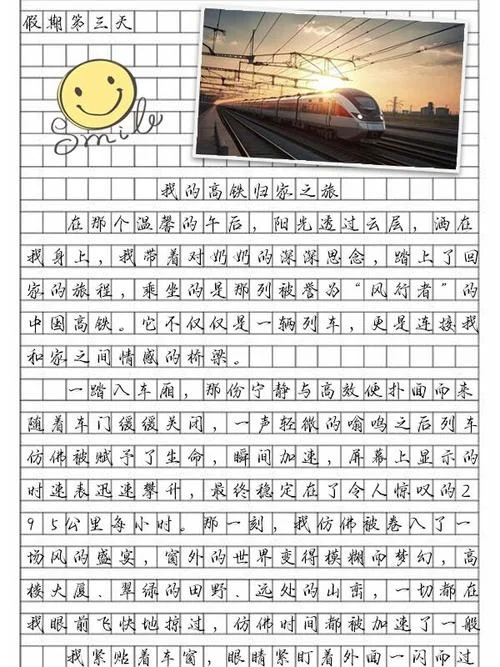 假期第三天
Smile
我的高铁归家之旅
在那个温馨的午后，阳光透过云层，洒在
我身上，我带着对奶奶的深深思念，踏上了回
家的旅程，乘坐的是那列被誉为“风行者”的
中国高铁。它不仅仅是一辆列车，更是连接我
和家之间情感的桥梁。
一踏入车厢，那份宁静与高效便扑面而来
随着车门缓缓关闭，一声轻微的嗡鸣之后列车
仿佛被赋予了生命，瞬间加速，屏幕上显示的
时速表迅速攀升，最终稳定在了令人惊叹的2
95公里每小时。那一刻，我仿佛被卷入了一
场风的盛宴，窗外的世界变得模糊而梦幻，高
楼大厦、翠绿的田野、远处的山峦，一切都在
我眼前飞快地掠过，仿佛时间都被加速了一般
我紧贴着车窗，眼睛紧盯着外面一闪而过